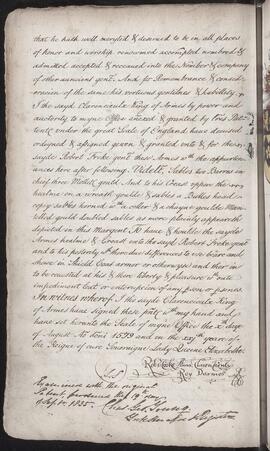 that he hath well meryted & deserved to be in all places
of honor and worship renowmed accompted nombred &
admitted accepted & receaved into the Number & company
of other auncient gent. And for Remembrance & consid-
eracion of the same his vertuous gentilnes & hability
I the sayd Clarencieulx King of Armes by power and
auctority to myne Office anexed & granted by Lres Pat-
tente under the great Seale of England have devised
ordeyned & assigned geven & granted unto & for the
sayde Robert Freke gent these Armes wth the appurten-
ances here after following. Videlt. Sables two Barres in
chief three Mollets goulde. And to his Creast uppon the
healme on a wreath goulde & sables a Bulles head
sables horned
gould dubled sables as more plainly appeareth
depicted in this margent To have & houlde the sayde
Armes healme & Creast unto the sayd Robert Freke gent
and to his posterity wth there due differences to use beare and
showe in Shield Coat armor or otherwyse and therin
to be revested at his & there liberty & pleasure wthout
impediment lett or enterruption of any person or persons.
In witnes wherof I the sayde Clarencieulx King
of Armes have signed these pnts wth my hand and
have set herunto the Seale of myne Office the x daye
of August Ao domi 1579 and in the xxjth yeare of
the Reigne of oure Soveraigne Lady Queene Elizabethe
Rob: Cooke Alias Clarencieulx
Roy Darmes
Examined with the original
Patent produced this 19th day
of Sept. 1835.
Chas. Geo. Young
York Herald & Register